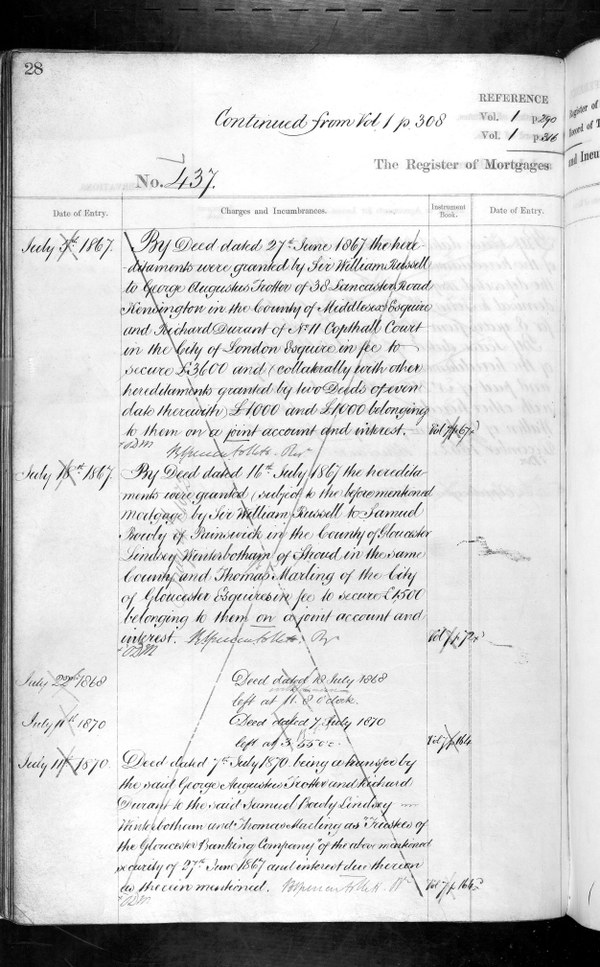 28
REFERENCE
Continued from Vol. 1 p. 308
Vol. 1 p. 290
Vol. 1 p. 316
The Register of Mortgages
Register of
Record of T
and Incu
No. 437.
Date of Entry.
Charges and Incumbrances.
Instrument Book.
Date of Entry.
July 3rd 1867.
By Deed dated 27th June 1867 the here-
ditaments were granted by Sir William Russell
to George Augustus Trotter of 38 Lancaster Road
Kensington in the County of Middlesex Esquire
and Richard Durant of No 11 Copthall Court
in the City of London Esquire in fee to
secure £3600 and (collaterally with other
hereditaments granted by two Deeds of even
date therewith) £1000 and £1000 belonging
to them on a joint account and interest.
Vol 7 p 67
ODM
July 18th 1867.
By Deed dated 16th July 1867 the heredita-
ments were granted (subject to the beforementioned
mortgage by Sir William Russell to Samuel
Bowly of Painswick in the County of Gloucester
Lindsey Winterbotham of Stroud in the same
County and Thomas Marling of the City
of Gloucester Esquires in fee to secure £1500
belonging to them on a joint account and
interest.
Vol 7 p 72
ODM
July 22nd 1868
Deed dated 18 July 1868
left at 11. 8 o'clock.
July 11th 1870
Deed dated 7 July 1870
left at 3. 55 o'c.
Vol 7 p 164
July 11th 1870.
Deed dated 7th July 1870 being a transfer by
the said George Augustus Trotter and Richard
Durant to the said Samuel Bowly Lindsey
Winterbotham and Thomas Marling as "Trustees of
the Gloucester Banking Company" of the above mentioned
security of 27th June 1867 and interest due thereon
as therein mentioned.
Vol 7 p 165
ODM